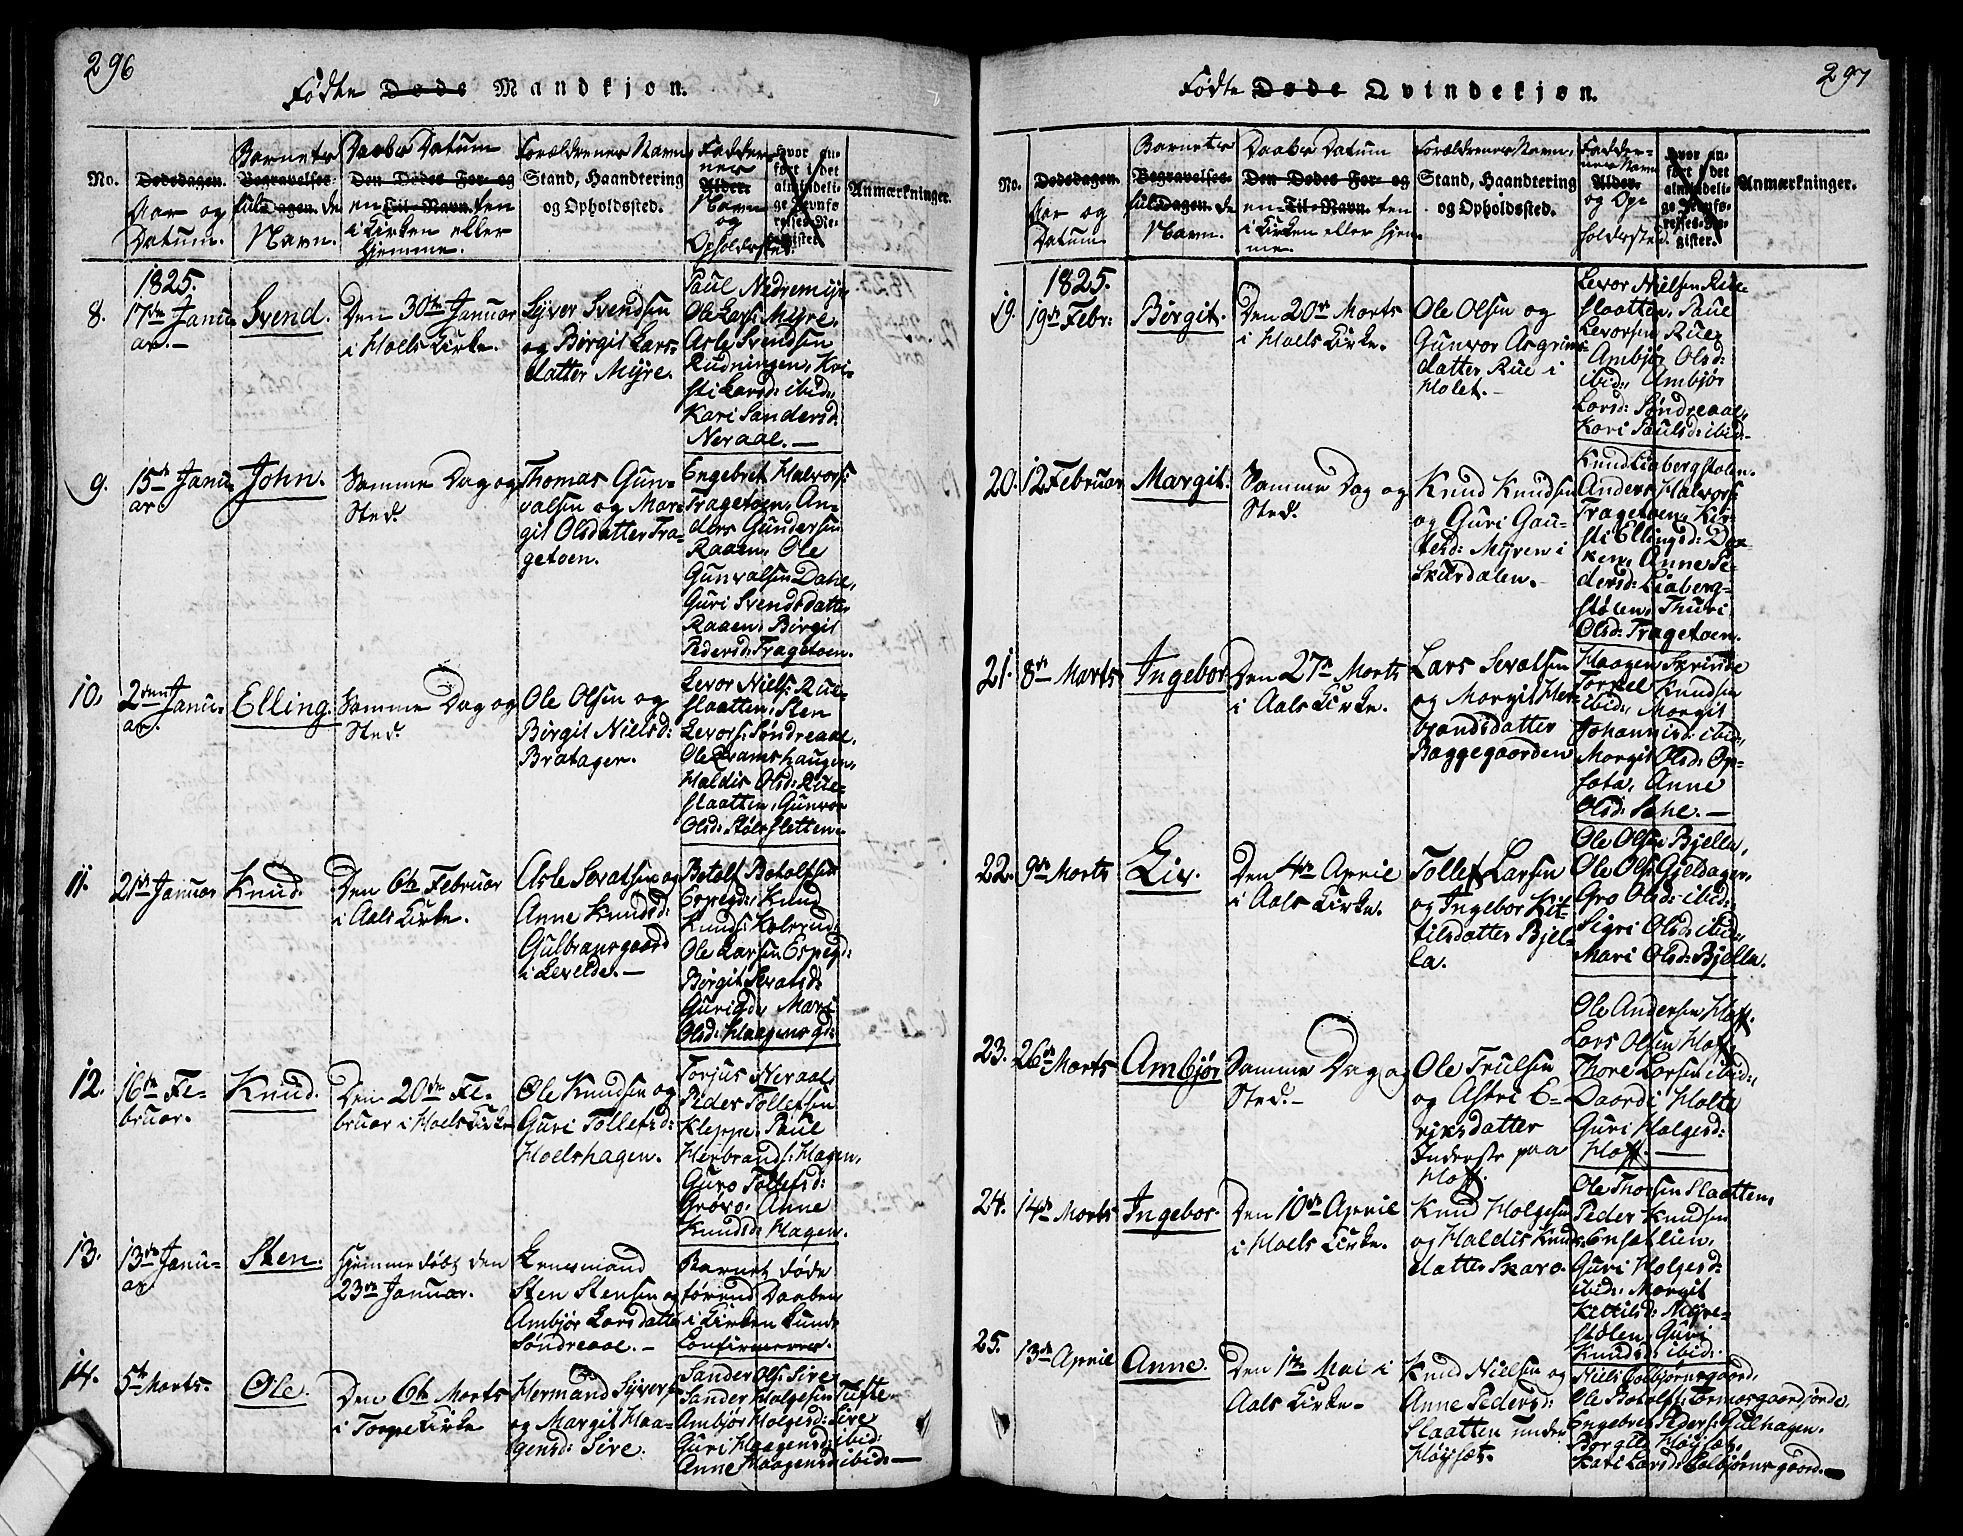 296
Fødte Døde Mandkjøn.
No.
Dødsdagen.
Aar og
Datum.
Barnets
Begravelses-
fulde
Dagen.
Navn.
Daabs Datum
Den Dødes For- og
en Til-Navn. ten
i Kirken eller
Hjemme.
Forældrenes Navn,
Stand, Haandtering
og Opholdssted.
Fadder-
nes
Alder.
Navn
og
Opholdssted.
Hvor an-
ført i det
almindeli-
ge Jevnfø-
relses-Re-
gister.
Anmærkninger.
1825.
8.
17de Janu-
ar.-
Svend.
Den 30te Januar
i Hols Kirke.
Syver Svendsen
og Birgit Lars-
datter Myre.
Paul Nedremyr,
Ole Lars: Myre,
Asle Svendsen
Rudningen, Kri-
sti Larsd: ibid:,
Kari Sandersd:
Neraal. —
9.
15de Janu-
ar
John.
Samme Dag og
Sted.
Thomas Gun-
valsen og Mar-
git Olsdatter Tra-
getoen.
Engebret Halvors:
Tragetoen, An-
ders Gundersen
Raaen, Ole
Gunvalsen Dahl,
Guri Svendsdatter
Raaen, Birgit
Pedersd: Tragetoen.
10.
2den Janu-
ar.
Elling.
Samme Dag og
Sted.
Ole Olsen og
Birgit Nielsd:
Bratager.
Levor Niels: Rue-
slaatten, Sten
Levors: Søndreaal,
Haldis Olsd: Rue-
slaatten, Gunvor
Olsd: Stølesletten.
11.
21de Januar
Knud.
Den 6te Februar
i Aals Kirke.
Asle Sevatsen og
Anne Knudsd:
Gulbransgaard
i Levelde. —
Botolf Botolfsen
Espegd:, Knud
Knuds: Kolsrud,
Ole Larsen Espegd:
Birgit Sevatsd:
Mari
Olsd: Haagensgd:
12.
16de Fe-
bruar.
Knud.
Den 20de Fe-
bruar i Hols Kirke
Ole Knudsen og
Guri Tollefsd:
Holshagen.
Torjus Neraal,
Peder Tollefsen
Kleppe, Paul
Herbrands: Hagen,
Guro Tollefsd:
Grøvo, Anne
Knudsd: Hagen.
13.
13de Janu-
ar
Sten.
Hjemmedøbt den
23de Januar.
Lensmand
Sten Stensen og
Ambjør Larsdatter
Søndreaal. —
Barnet døde
førend Daaben
i Kirken kunde
Confirmeres.
14.
5te Marts.
Ole.
Den 6te Marts
i Torpe Kirke
Hermand Syvers:
og Margit Haa-
gensd: Sire.
Sander Ols: Sire
Sander Holgesen Tufte
Ambjør Holgesd: Sire
Guri Haagensd: ibid:
Anne Haagensd: ibid: —
297
Fødte Døde Qvindekjøn.
No.
Dødsdagen.
Aar og
Datum.
Barnets
Begravelses-
fulde
Dagen.
Navn.
Daabs Datum
Den Dødes For- og
en Til-Navn. ten
i Kirken eller Hjem-
me.
Forældrenes Navn,
Stand, Haandtering
og Opholdssted.
Fadder-
nes Navn
Alder.
og Op-
holdssted.
Hvor an-
ført i det
almindeli-
ge Jevnfø-
relses-Re-
gister.
Anmærkninger.
1825.
19.
19de Febr:
Birgit.
Den 20de Marts
i Hols Kirke.
Ole Olsen og
Gunvor Asgrims-
datter Rue i
Holet. —
Levor Nielsen Rue-
slaatten, Paul
Levorsen Rue,
Ambjør Olsd:
ibid:, Ambjør
Larsd: Søndreaal,
Kari Paulsd: ibid:
20.
12 Februar
Margit.
Samme Dag og
Sted.
Knud Knudsen
og Guri Gau-
tesd: Myren i
Skurdalen.
Knud Liabergstølen.
Anders Halvors:
Tragetoen, Kir-
sti Ellingsd: Dok-
ken, Anne Pe-
dersd: Liaberg-
stølen, Thuri
Olsd: Tragetoen.
21.
8de Marts
Ingebor
Den 27de Marts
i Aals Kirke.
Lars Sevatsen
og Margit Her-
brandsdatter
Baggegaarden
Haagen Skrinde
Torkel Knudsen
ibid:, Margit
Johannisd: ibid:,
Margit Olsd: Op-
sata, Anne
Olsd: Sahe. —
22.
9de Marts
Liv.
Den 4de April
i Aals Kirke.
Tollef Larsen
og Ingebor Kit-
tilsdatter Bjel-
la.
Ole Olsen Bjella,
Ole Ols: Gjeldager,
Gro Olsd: ibid:
Sigri Olsd: ibid:,
Mari Olsd: Bjella.
23.
26de Marts
Ambjør
Samme Dag og
Sted. —
Ole Trulsen
og Astri E-
riksdatter
Inderste paa
Hoff.
Ole Andersen Hoff.
Lars Olsen Hoff,
Thore Larsen ibid:,
Daardi Holte
Guri Holgesd:
Hoff. —
24.
14de Marts
Ingebor.
Den 10de April
i Hols Kirke.
Knud Holgesen
og Haldis Knuds-
datter Skaro
Ole Thorsen Slaatten,
Peder Knudsen
Ensatlien,
Guri Holgesd:
ibid:, Margit
Kittilsd: Myre-
stølen, Guri
Knudsd: ibid:
25.
13de April
Anne.
Den 1te Mai i
Aals Kirke.
Knud Nielsen og
Anne Pedersd:
Slaatten under
Høyset.
Niels Colbjørnsgaard,
Ole Botolfs: Tormosgaardjorde,
Engebret Peders: Gulhagen.
Borgild Høyset,
Kari Larsd: Colbjørnsgaard. —